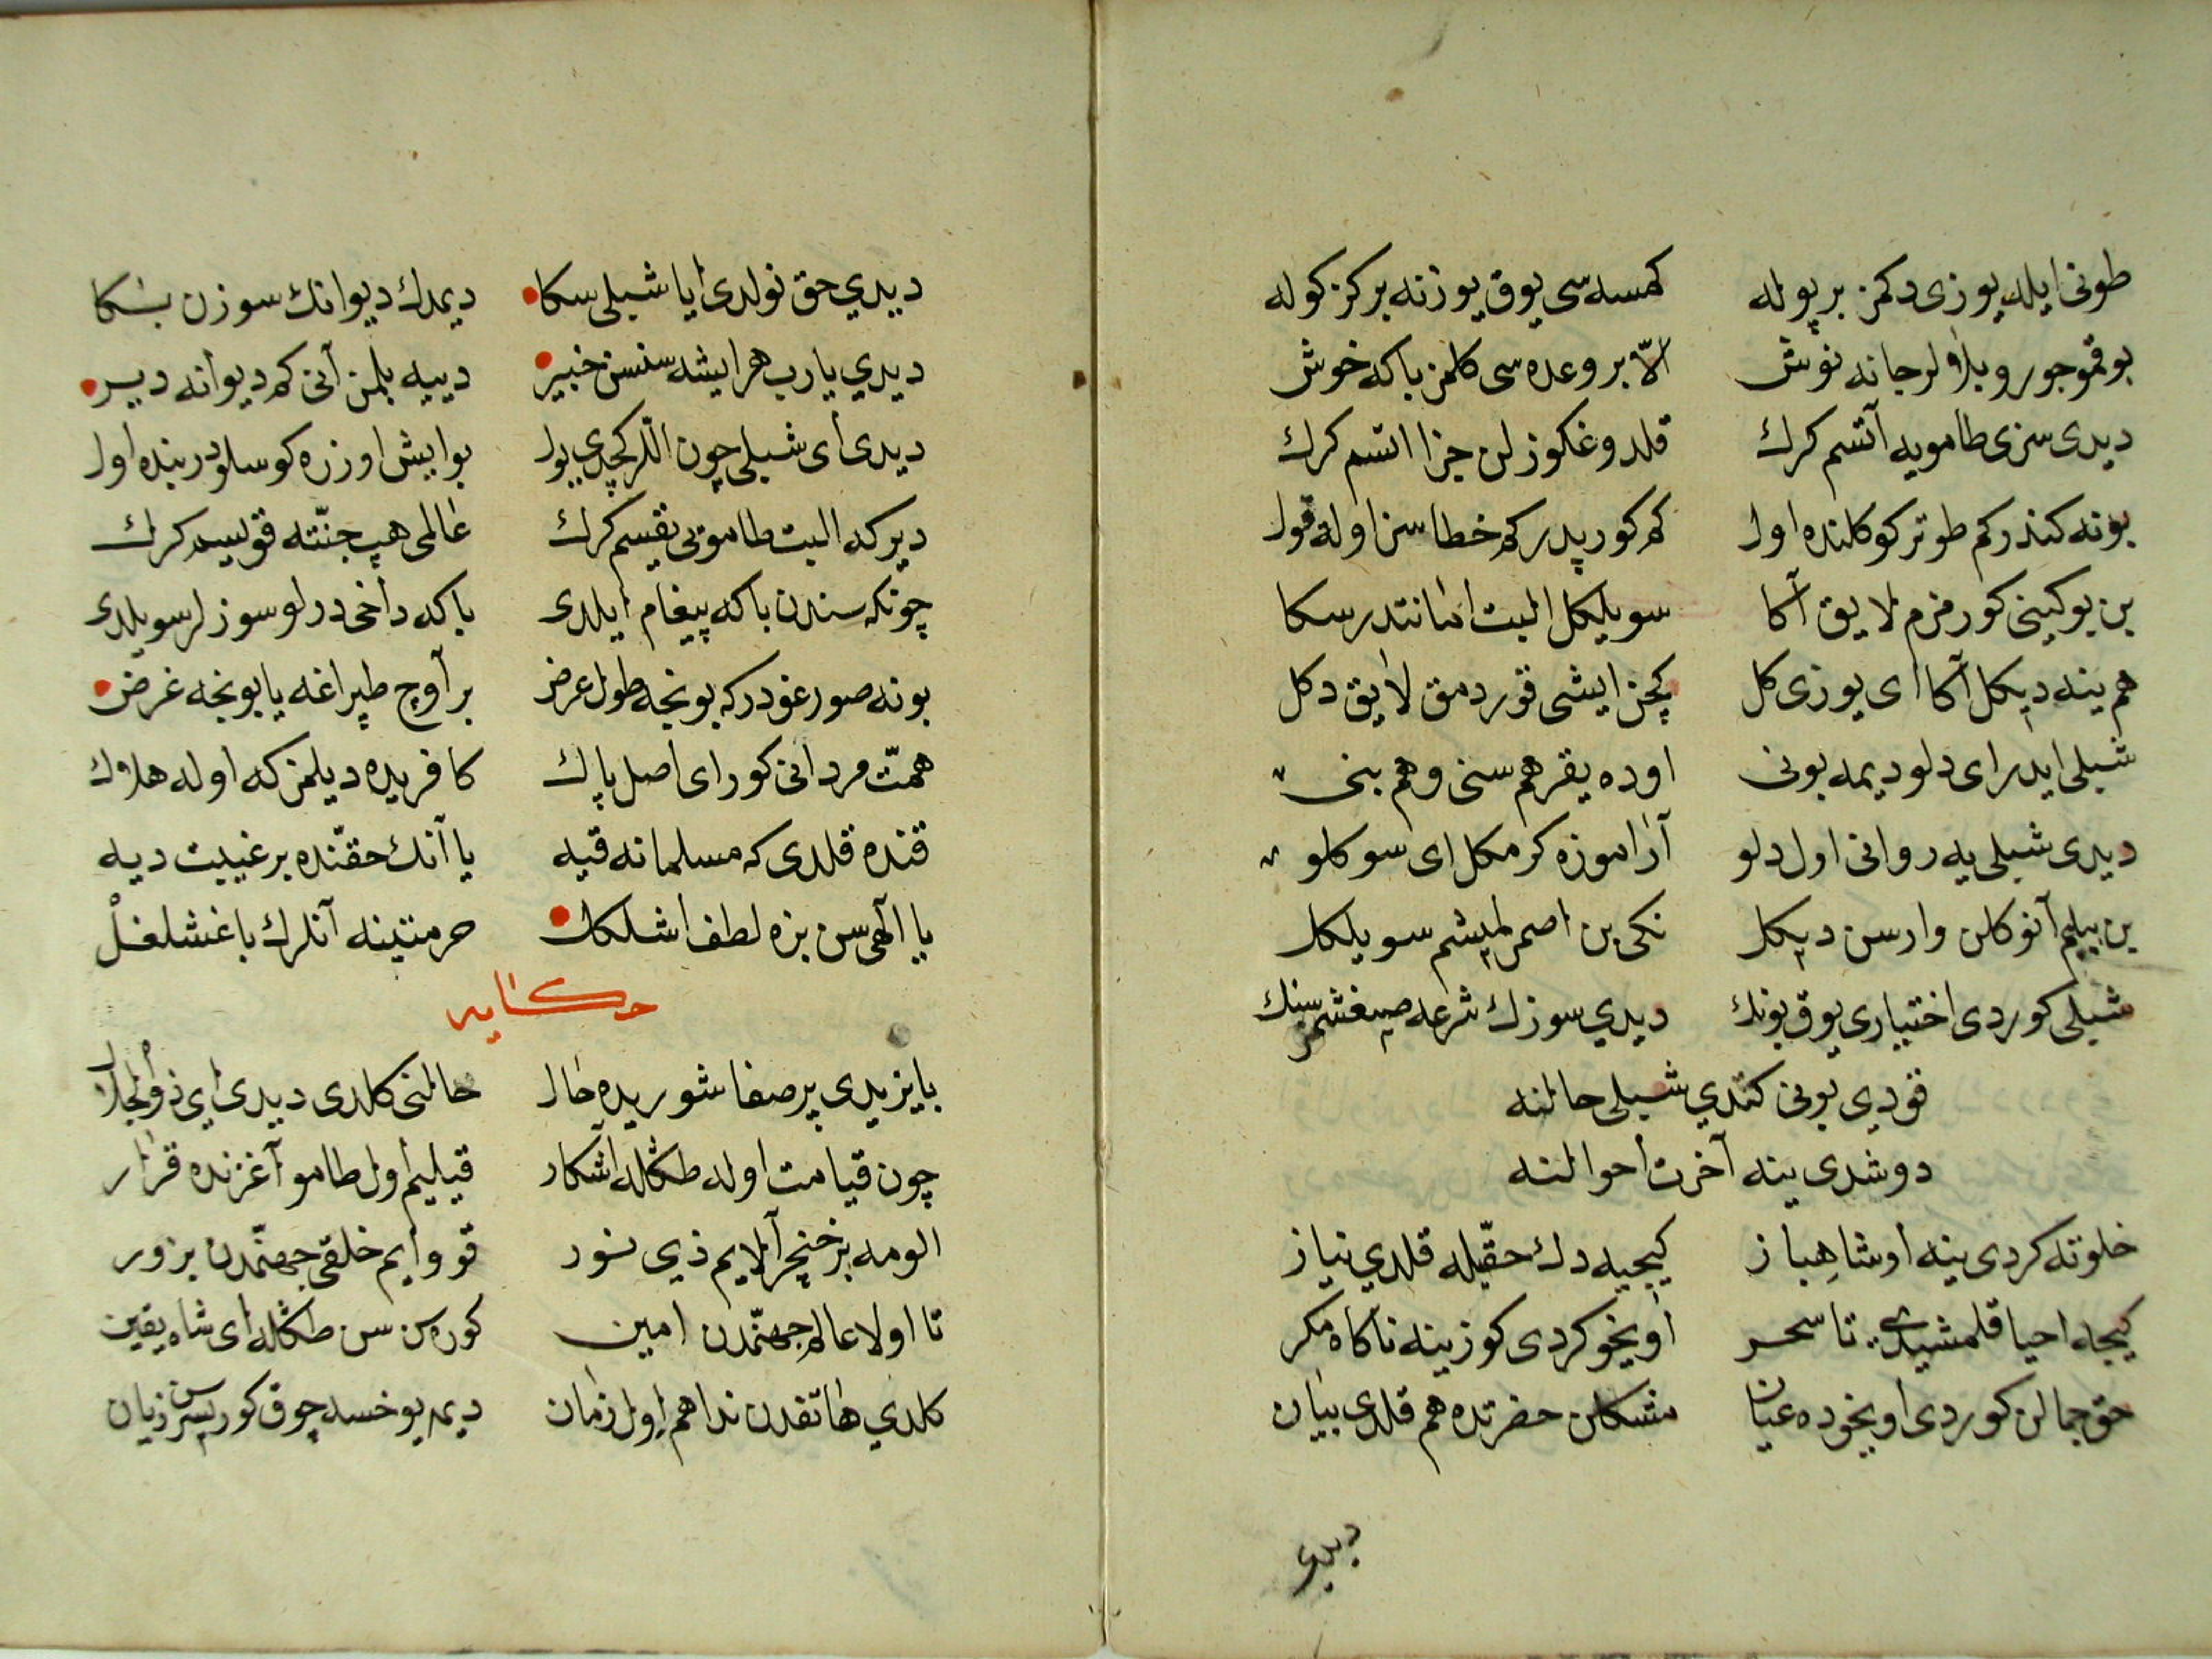 طونی ایله یوزی دکمز بر پوله کمسه سی یوق یوزنه بر کز کوله
بو قمو جور و بلاولر جانه نوش الّا بر وعده سی کلمز باکه خوش
دیدی سزی طامویه آتسم کرك قلدوغکوزلن جزا اتسم کرك
بونه کندر کم طوتر کوکلنده اول کم کورپدر کم خطاسز اوله قول
بن بو کینی کورمزم لایق آکا سویلکل البت امانتدر سکا
هم ینه دیکل آکا ای یوزی کل کچن ایشی قوردمق لایق دکل
شبلی ایدر ای دلو دیمه بونی اوده یقر هم سنی و هم بنی
دیدی شبلی یه روانی اول دلو آراموزه کرمکل ای سوکلو
بن بیلیم آنوکلن وارسن دیکل نکی بن اصمرلمیشم سویلکل
شبلی کوردی اختیاری یوق بونك دیدي سوزك شرعه صیغشمز سنك
قودی بونی کتدي شبلی حالنه
دوشدی ینه آخرت احوالنه
خلوته کردی ینه اوشاهباز کیجیه دك حقّیله قلدي نیاز
کیجه احیا قلمشیدی تا سحر اویخو کردی کوزینه ناکاه مکر
حق جمالن کوردی اویخوده عیان مشکلن حضرتده هم قلدی بیان
دیدی
دیدي حق نولدی ایا شبلی سکا دیمدك دیوانك سوزن بکا
دیدي یا رب هر ایشه سنسن خبیر دییه بلمن آنی کم دیوانه دیر
دیدی ای شبلی چون الّلرکچدی یول بو ایش اوزره کوسلودر بنده اول
دیر که البت طاموتی یقسم کرك عالمی هپ جنّته قویسم کرك
چونکه سندن باکه پیغام ایلدی باکه داخی درلو سوزلر سویلدی
بونه صورغودر که بونجه طول عرض بر آوج طپراغه یا بونجه غرض
همّت مردانی کور ای اصل پاك کافریده دیلمز که اوله هلاك
قنده قلدی که مسلمانه قیه یا آنك حقّنده بر غیبت دیه
یا الهی سن بزه لطف اشلکل حرمتینه آنلرك باغشلغل
حکایه
بایزیدی پر صفا شوریده حال حالنی کلدی دیدی ای ذو الجلال
چون قیامت اوله طکله آشکار قیلیم اول طامو آغزنده قرار
الومه بر خنچر آلایم ذی نور قووایم خلقی جهنّمدن بزور
تا اولا عالم جهنّمدن امین کوره سن سن طکله ای شاه یقین
کلدي هاتفدن ندا هم اول زمان دیمه یوخسه چوق کورسرسن زیان